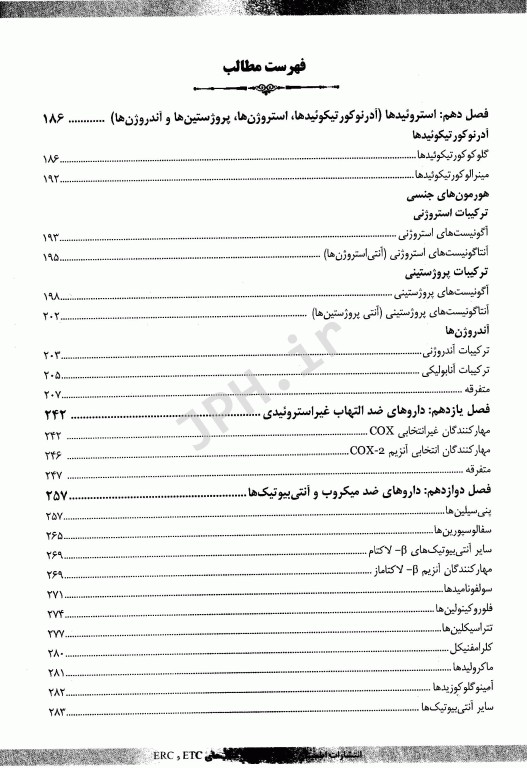 فهرست مطالب
فصل دهم: استروئیدها (آدرنوکورتیکوئیدها، استروژن‌ها، پروژستین‌ها و آندروژن‌ها) ............ ۱۸۶
آدرنوکورتیکوئیدها
گلوکوکورتیکوئیدها ............ ۱۸۶
مینرالوکورتیکوئیدها ............ ۱۹۲
هورمون‌های جنسی
ترکیبات استروژنی
آگونیست‌های استروژنی ............ ۱۹۳
آنتاگونیست‌های استروژنی (آنتی‌استروژن‌ها) ............ ۱۹۵
ترکیبات پروژستینی
آگونیست‌های پروژستینی ............ ۱۹۸
آنتاگونیست‌های پروژستینی (آنتی پروژستین‌ها) ............ ۲۰۲
آندروژن‌ها
ترکیبات آندروژنی ............ ۲۰۳
ترکیبات آنابولیکی ............ ۲۰۵
متفرقه ............ ۲۰۷
فصل یازدهم: داروهای ضد التهاب غیراستروئیدی ............ ۲۴۲
مهارکنندگان غیرانتخابی COX ............ ۲۴۲
مهارکنندگان انتخابی آنزیم COX-2 ............ ۲۴۶
متفرقه ............ ۲۴۷
فصل دوازدهم: داروهای ضد میکروب و آنتی‌بیوتیک‌ها ............ ۲۵۷
پنی‌سیلین‌ها ............ ۲۵۷
سفالوسپورین‌ها ............ ۲۶۵
سایر آنتی‌بیوتیک‌های β- لاکتام ............ ۲۶۹
مهارکنندگان آنزیم β- لاکتاماز ............ ۲۶۹
سولفونامیدها ............ ۲۷۱
فلوروکینولین‌ها ............ ۲۷۴
تتراسیکلین‌ها ............ ۲۷۷
کلرامفنیکل ............ ۲۸۰
ماکرولیدها ............ ۲۸۱
آمینوگلوکوزیدها ............ ۲۸۲
سایر آنتی‌بیوتیک‌ها ............ ۲۸۳
JPH.ir
انتشارات های ETC و ERC